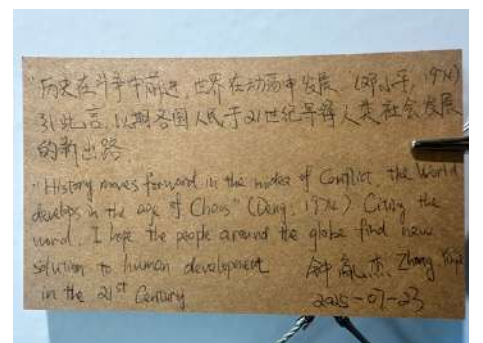 "历史在斗争中前进,世界在动荡中发展"(邓小平,1974)
引此言,以期各国人民于21世纪寻得人类社会发展
的新出路
"History moves forward in the midst of Conflict, the World
develops in the age of Chaos" (Deng, 1974) Citing the
word, I hope the people around the globe find new
solution to human development
in the 21st Century
Zhang
2025-07-23